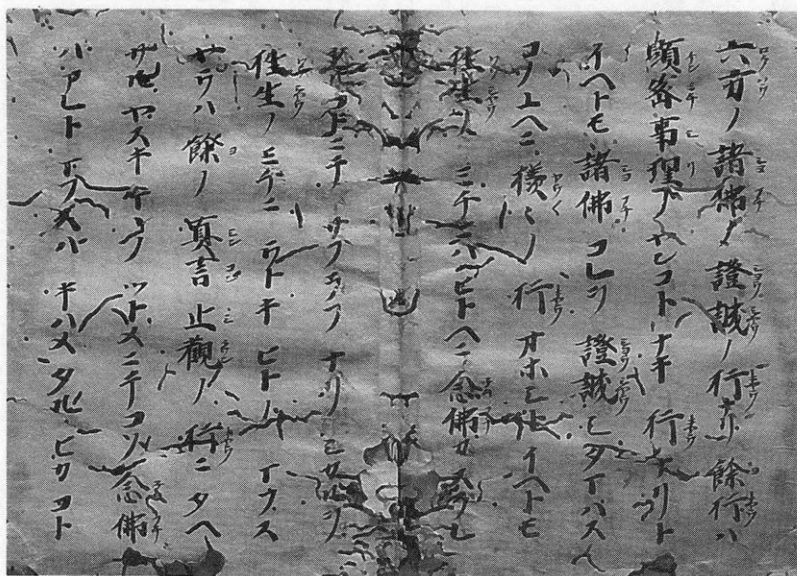 六方ノ諸佛ノ證誠ノ行ナリ餘行ハ
顕密事理ノヤムコトナキ行ナリト
イヘトモ諸佛コレヲ證誠シタマハス
コノユヘニ様々ノ行オホシトイヘトモ
往生ノミチニハヒトヘニ念佛カスクレ
タルコトニテサフラフナリシカルヲ
往生ノミチニウトキヒトノ
ヤウハ餘ノ真言止觀ノ行ニタヘ
サルヤスキ ツトメニテコソ念佛
ハアレトイフハキハメタルヒカコト